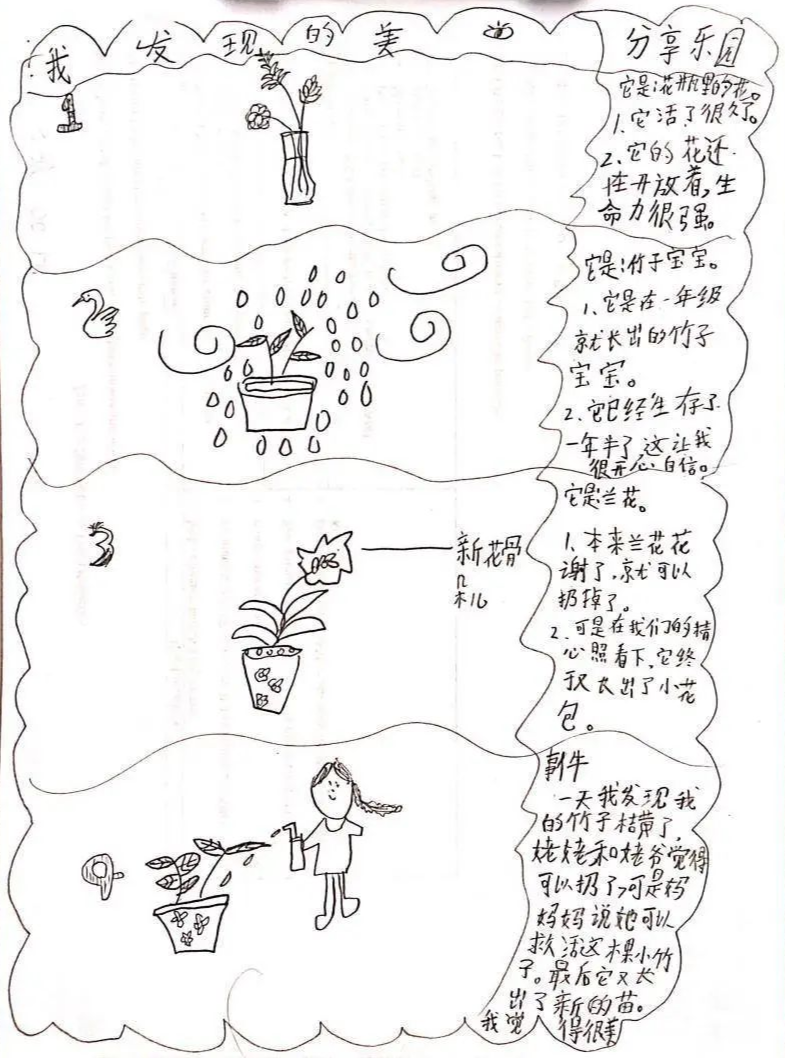 我发现的美
分享乐园
1
它是花瓶里的花。
1.它活了很久了。
2.它的花还
在开放着,生
命力很强。
2
它是竹子宝宝。
1.它是在一年级
就长出的竹子
宝宝。
2.它已经生存了
一年半了,这让我
很开心自信。
3
新花骨
朵儿
它是兰花。
1.本来兰花花
谢了,就可以
扔掉了。
2.可是在我们的精
心照看下,它终
于又长出了小花
包。
4
事件
一天我发现我
的竹子枯萎了,
姥姥和姥爷觉得
可以扔了,可是妈
妈妈说她可以
救活这棵小竹
子。最后它又长
出了新的苗。
我觉得很美